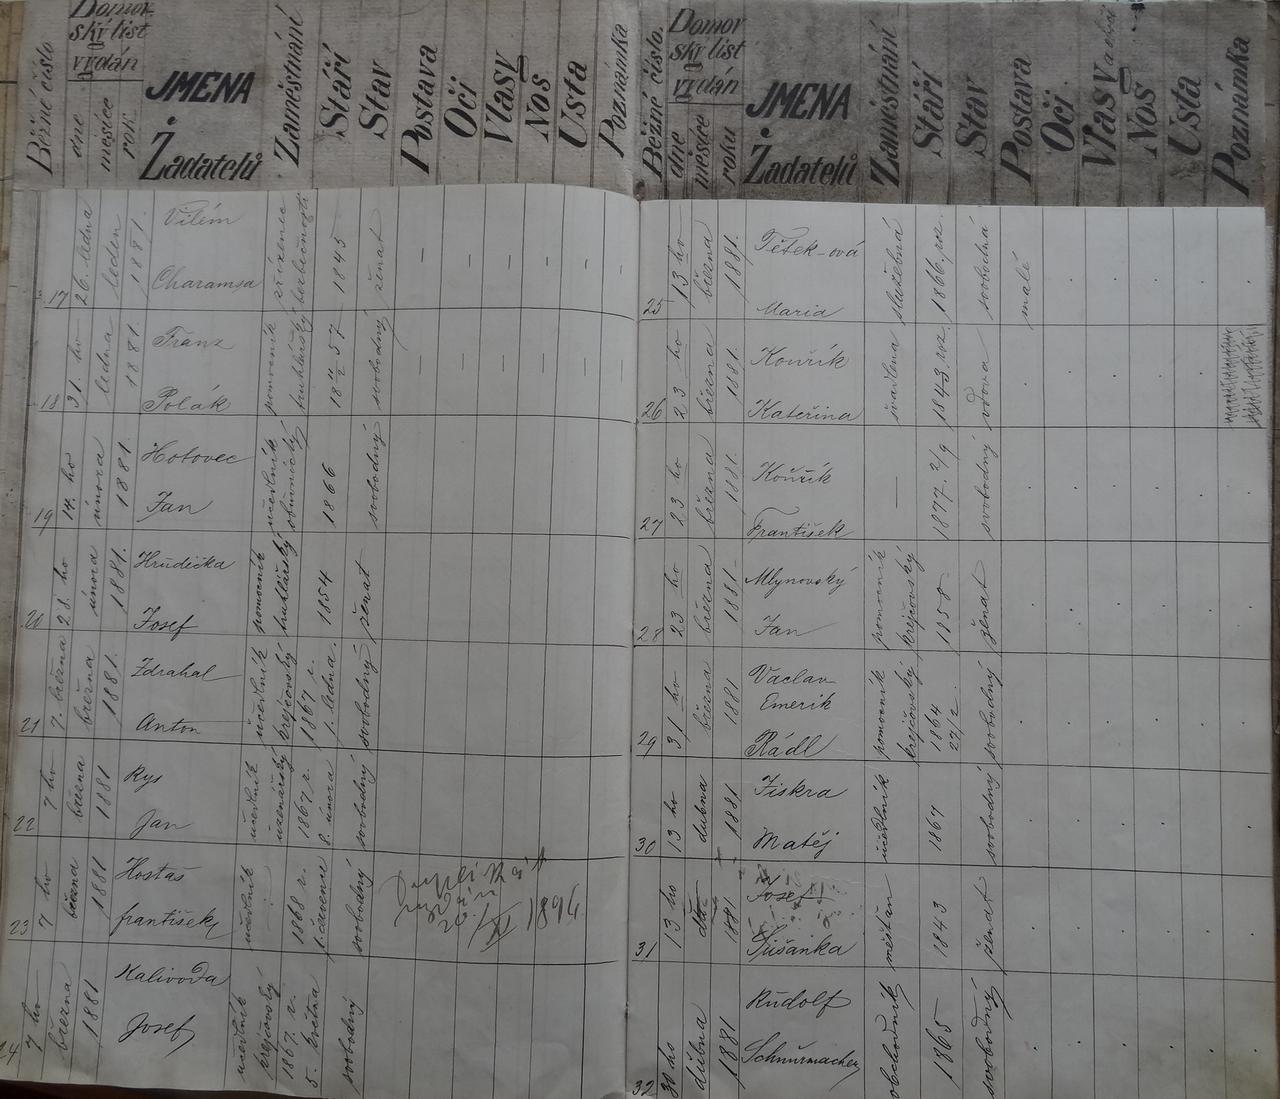 Běžné číslo.
Domov
ský list
vydán
dne
měsíce
rok.
JMÉNA
Žadatelů
Zaměstnání
Stáří
Stav
Postava
Oči
Vlasy
Nos
Ústa
Poznámka
17
26. ledna
leden
1881.
Vilém
Charamsa
zřízenec
bezbečnosti
1845
ženat
18
31. ho
ledna
1881.
Franz
Polák
pomocník
truhlářský
18 11/2 57
svobodný
19
14. ho
února
1881.
Hotovec
Jan
učedlník
obuvnický
1866
svobodný
20
28. ho
února
1881.
Hrudička
Josef
pomocník
truhlářský
1854
ženat
21
7. března
března
1881.
Zdrahal
Anton
učedlník
krejčovský
1867 r.
1. ledna.
svobodný
22
7 ho
března
1881
Rys
Jan
učedlník
uzenářský
1867 r.
8. února
svobodný
23
7 ho
března
1881
Hostaš
františek
učedlník
1868 r.
1. červena
svobodný
1881
24
7 ho
března
1881
Kalivoda
Josef
učedlník
krejčovský
1867. r.
5. května
svobodný
Běžné číslo.
Domov
ský list
vydán
dne
měsíce
roku
JMÉNA
Žadatelů
Zaměstnání
Stáří
Stav
Postava
Oči
Vlasy
Nos
Ústa
Poznámka
25
13 ho
března
1881.
Tětek-ová
Maria
služebná
1866. roz.
svobodná
malé
26
23 ho
března
1881.
Kouřík
Kateřina
švadlena
1843. roz.
vdova
27
23 ho
března
1881.
Kouřík
František
1877. 2/9
svobodný
28
23 ho
března
1881
Mlynovský
Jan
pomocník
krejčovský
1858
ženat
29
31 ho
března
1881
Václav
Emerik
Rádl
pomocník
krejčovský
1864
27/2.
svobodný
30
13 ho
dubna
1881
Fiskra
Matěj
učedlník
1867
svobodný
31
13 ho
1881
Josef
Sušanka
měšťan
1843
ženat
32
30 ho
dubna
1881
Rudolf
Schnurmacher
obchodník
1865
svobodný